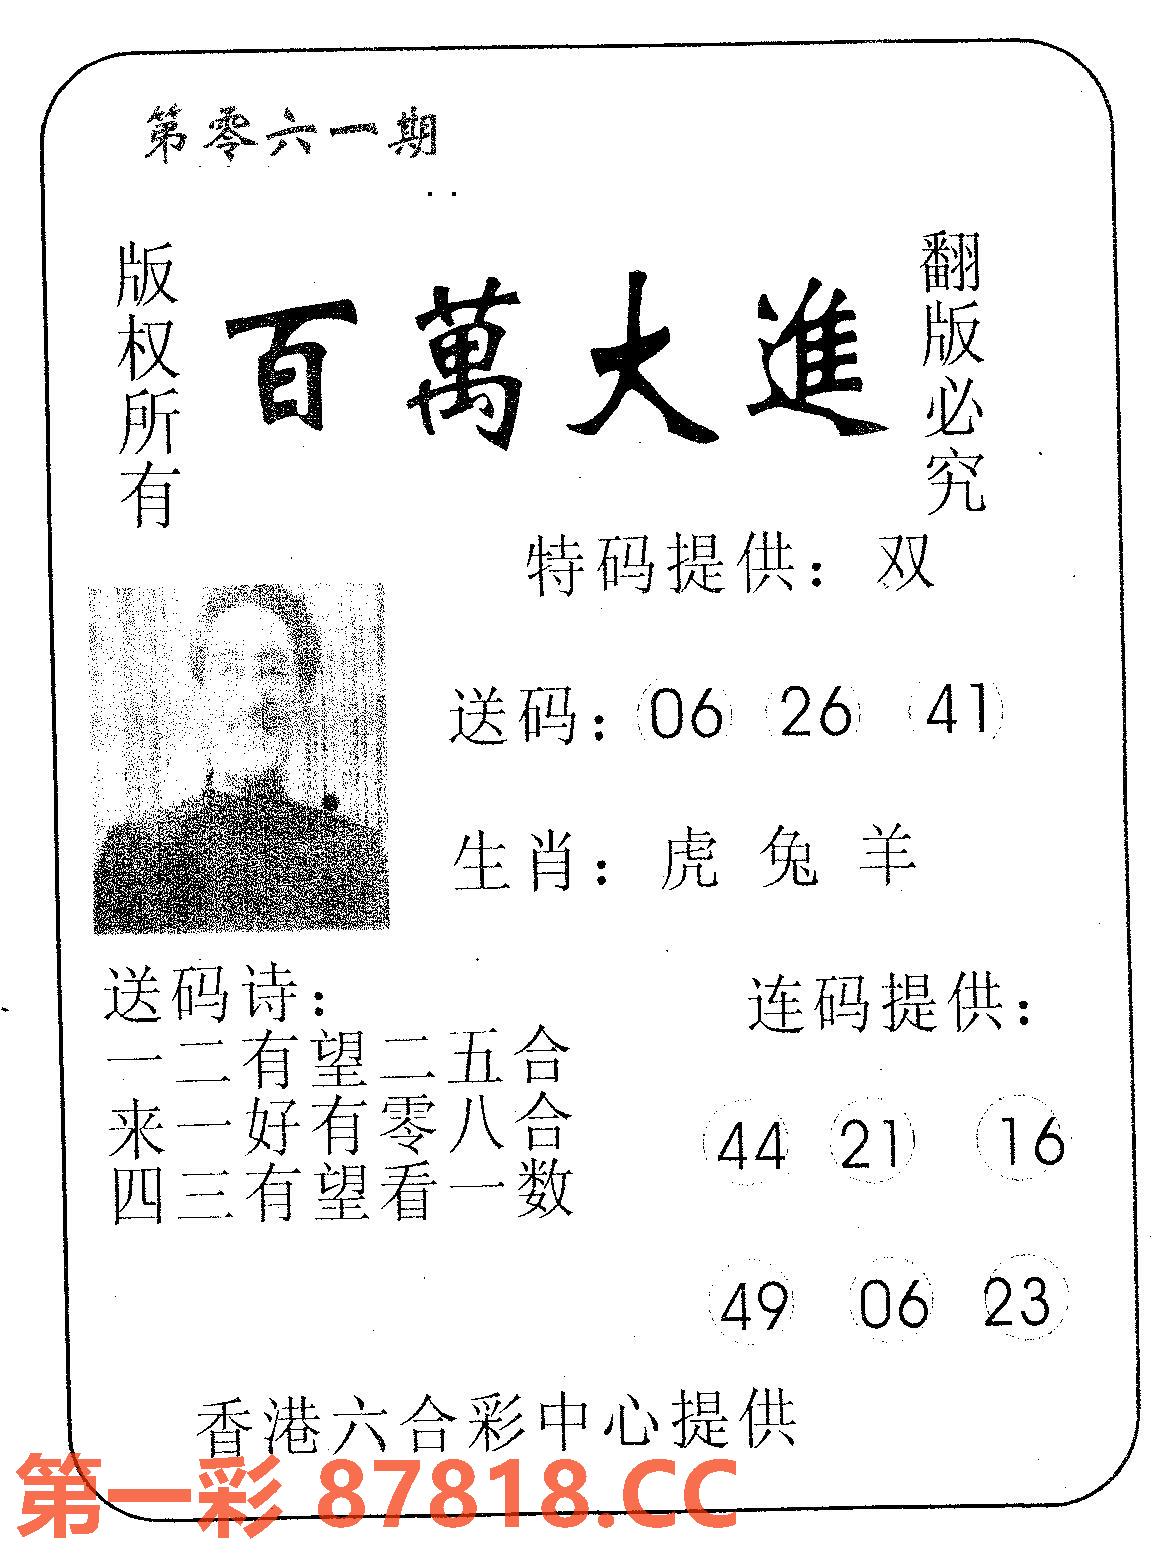 第零六一期
版权所有
百萬大進
翻版必究
特码提供：双
送码：06 26 41
生肖：虎 兔 羊
送码诗：
一二有望二五合
来一好有零八合
四三有望看一数
连码提供：
44 21 16
49 06 23
香港六合彩中心提供
第一彩 87818.CC